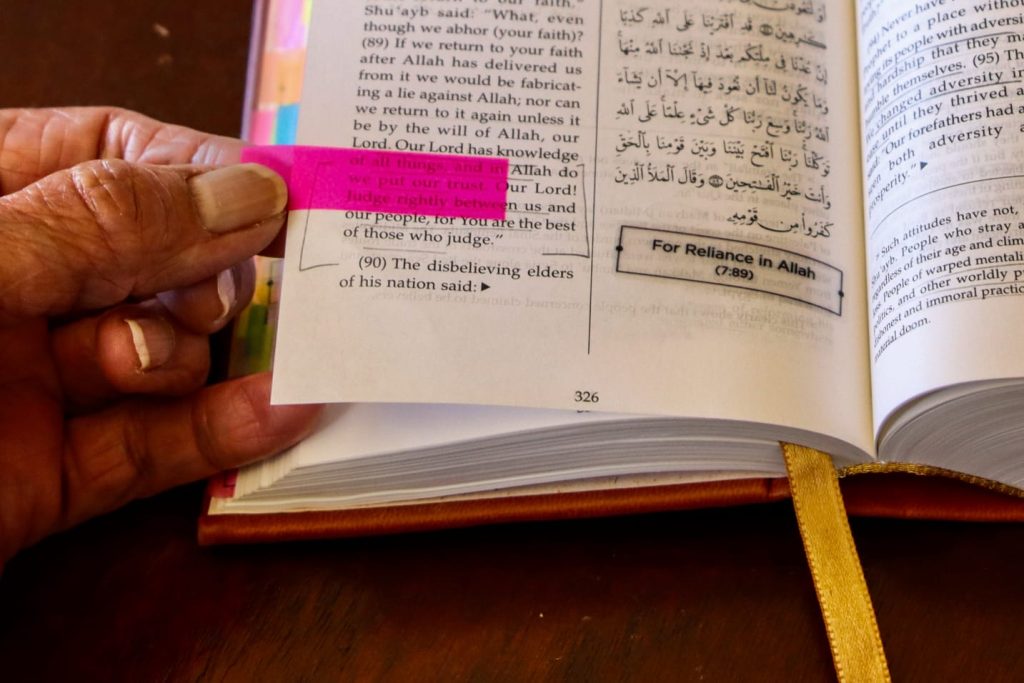 return to our faith."
Shu'ayb said: "What, even
though we abhor (your faith)?
(89) If we return to your faith
after Allah has delivered us
from it we would be fabricat-
ing a lie against Allah; nor can
we return to it again unless it
be by the will of Allah, our
Lord. Our Lord has knowledge
of all things, and in Allah do
we put our trust. Our Lord!
Judge rightly between us and
our people, for You are the best
of those who judge."
(90) The disbelieving elders
of his nation said: ►
كَٰرِهِينَ ۝ قَدِ ٱفْتَرَيْنَا عَلَى ٱللَّهِ كَذِبًا
إِنْ عُدْنَا فِى مِلَّتِكُم بَعْدَ إِذْ نَجَّىٰنَا ٱللَّهُ مِنْهَا
وَمَا يَكُونُ لَنَآ أَن نَّعُودَ فِيهَآ إِلَّآ أَن يَشَآءَ
ٱللَّهُ رَبُّنَا وَسِعَ رَبُّنَا كُلَّ شَىْءٍ عِلْمًا عَلَى ٱللَّهِ
تَوَكَّلْنَا رَبَّنَا ٱفْتَحْ بَيْنَنَا وَبَيْنَ قَوْمِنَا بِٱلْحَقِّ
وَأَنتَ خَيْرُ ٱلْفَٰتِحِينَ ۝ وَقَالَ ٱلْمَلَأُ ٱلَّذِينَ
كَفَرُوا۟ مِن قَوْمِهِ
For Reliance in Allah
(7:89)
326
(94) Never have
Prophet to a place without
its people with adversi
hardship that they ma
themselves. (95) The
changed adversity in
until they thrived a
said: "Our forefathers had a
both adversity a
prosperity." ►
Such attitudes have not,
Shu'ayb. People who stray a
regardless of their age and clim
People of warped mentali
politics, and other worldly p
dishonest and immoral practic
material doom.